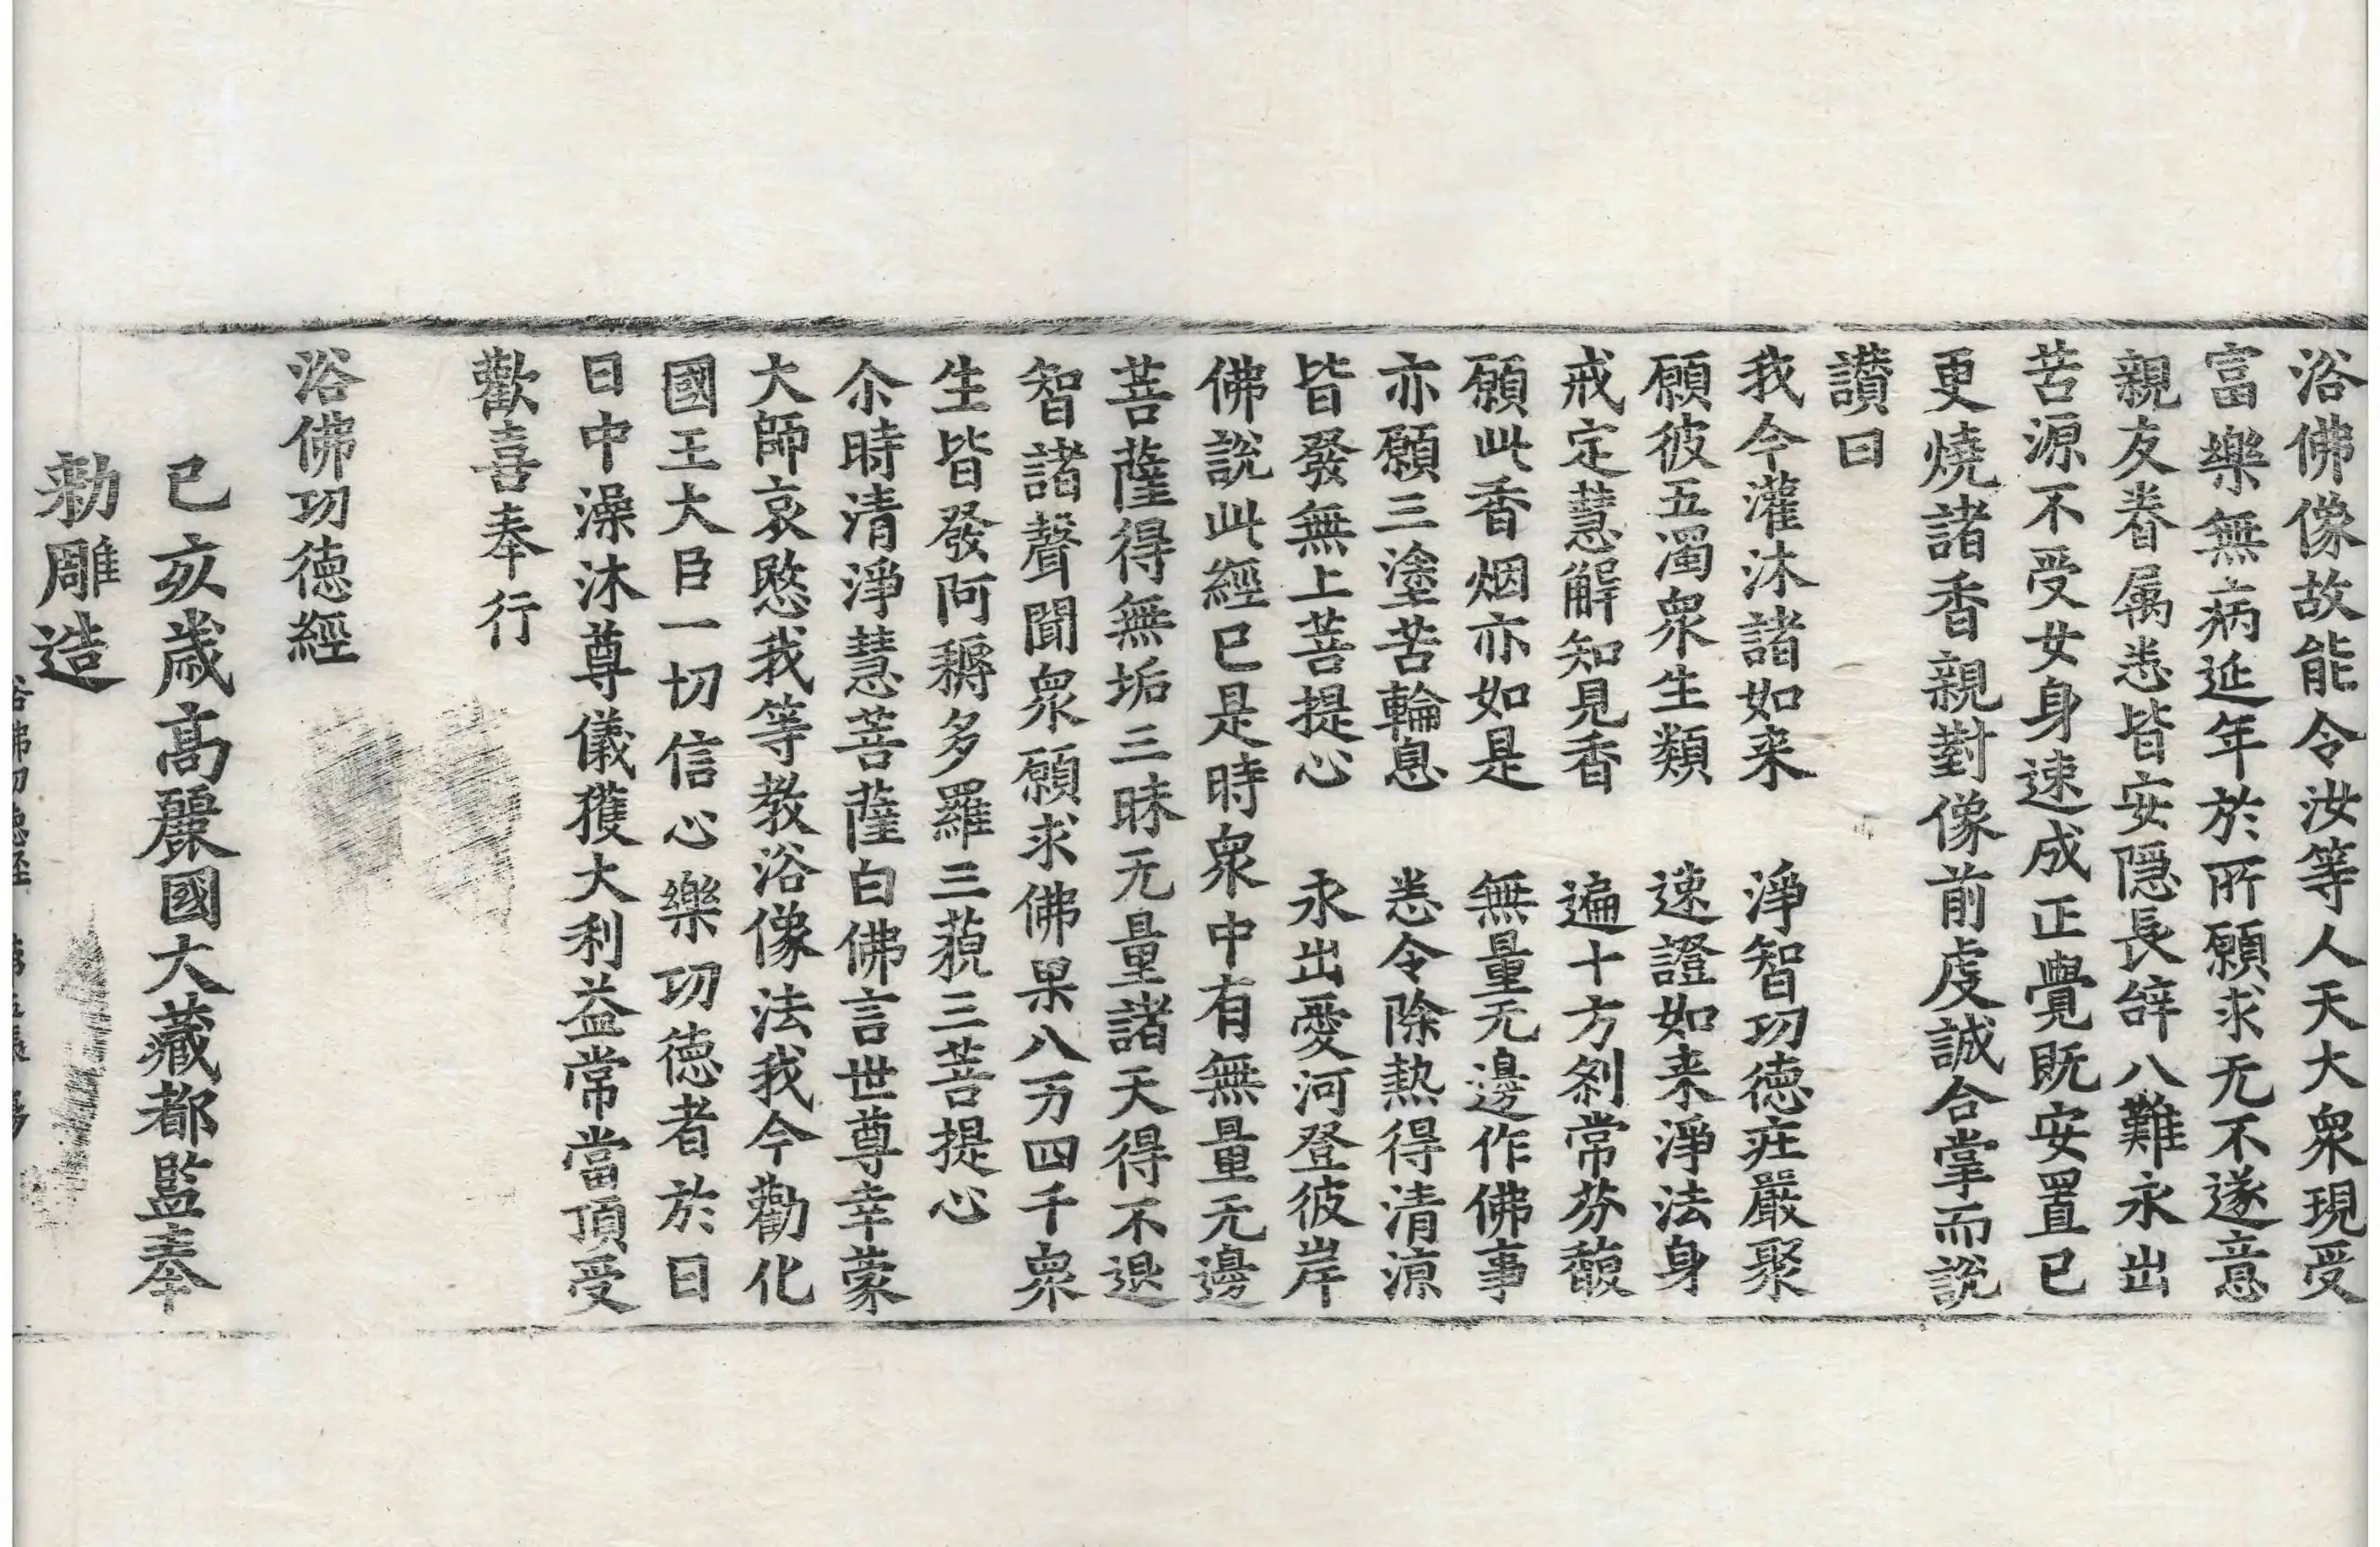 浴佛像故能令汝等人天大衆現受
富樂無病延年於所願求无不遂意
親友眷属悉皆安隱長辝八難永出
苦源不受女身速成正覺既安置已
更燒諸香親對像前虔誠合掌而說
讃曰
我今灌沐諸如来　淨智功德莊嚴聚
願彼五濁衆生類　速證如来淨法身
戒定慧解知見香　遍十方刹常芬馥
願此香烟亦如是　無量无邊作佛事
亦願三塗苦輪息　悉令除熱得清凉
皆發無上菩提心　永出愛河登彼岸
佛說此經已是時衆中有無量无邊
菩薩得無垢三昧无量諸天得不退
智諸聲聞衆願求佛果八万四千衆
生皆發阿耨多羅三藐三菩提心
尒時清淨慧菩薩白佛言世尊幸蒙
大師哀愍我等教浴像法我今勸化
國王大臣一切信心樂功德者於日
日中澡沐尊儀獲大利益常當頂受
歡喜奉行
浴佛功德經
己亥歲高麗國大藏都監奉
勑雕造
浴佛功德經　第五張